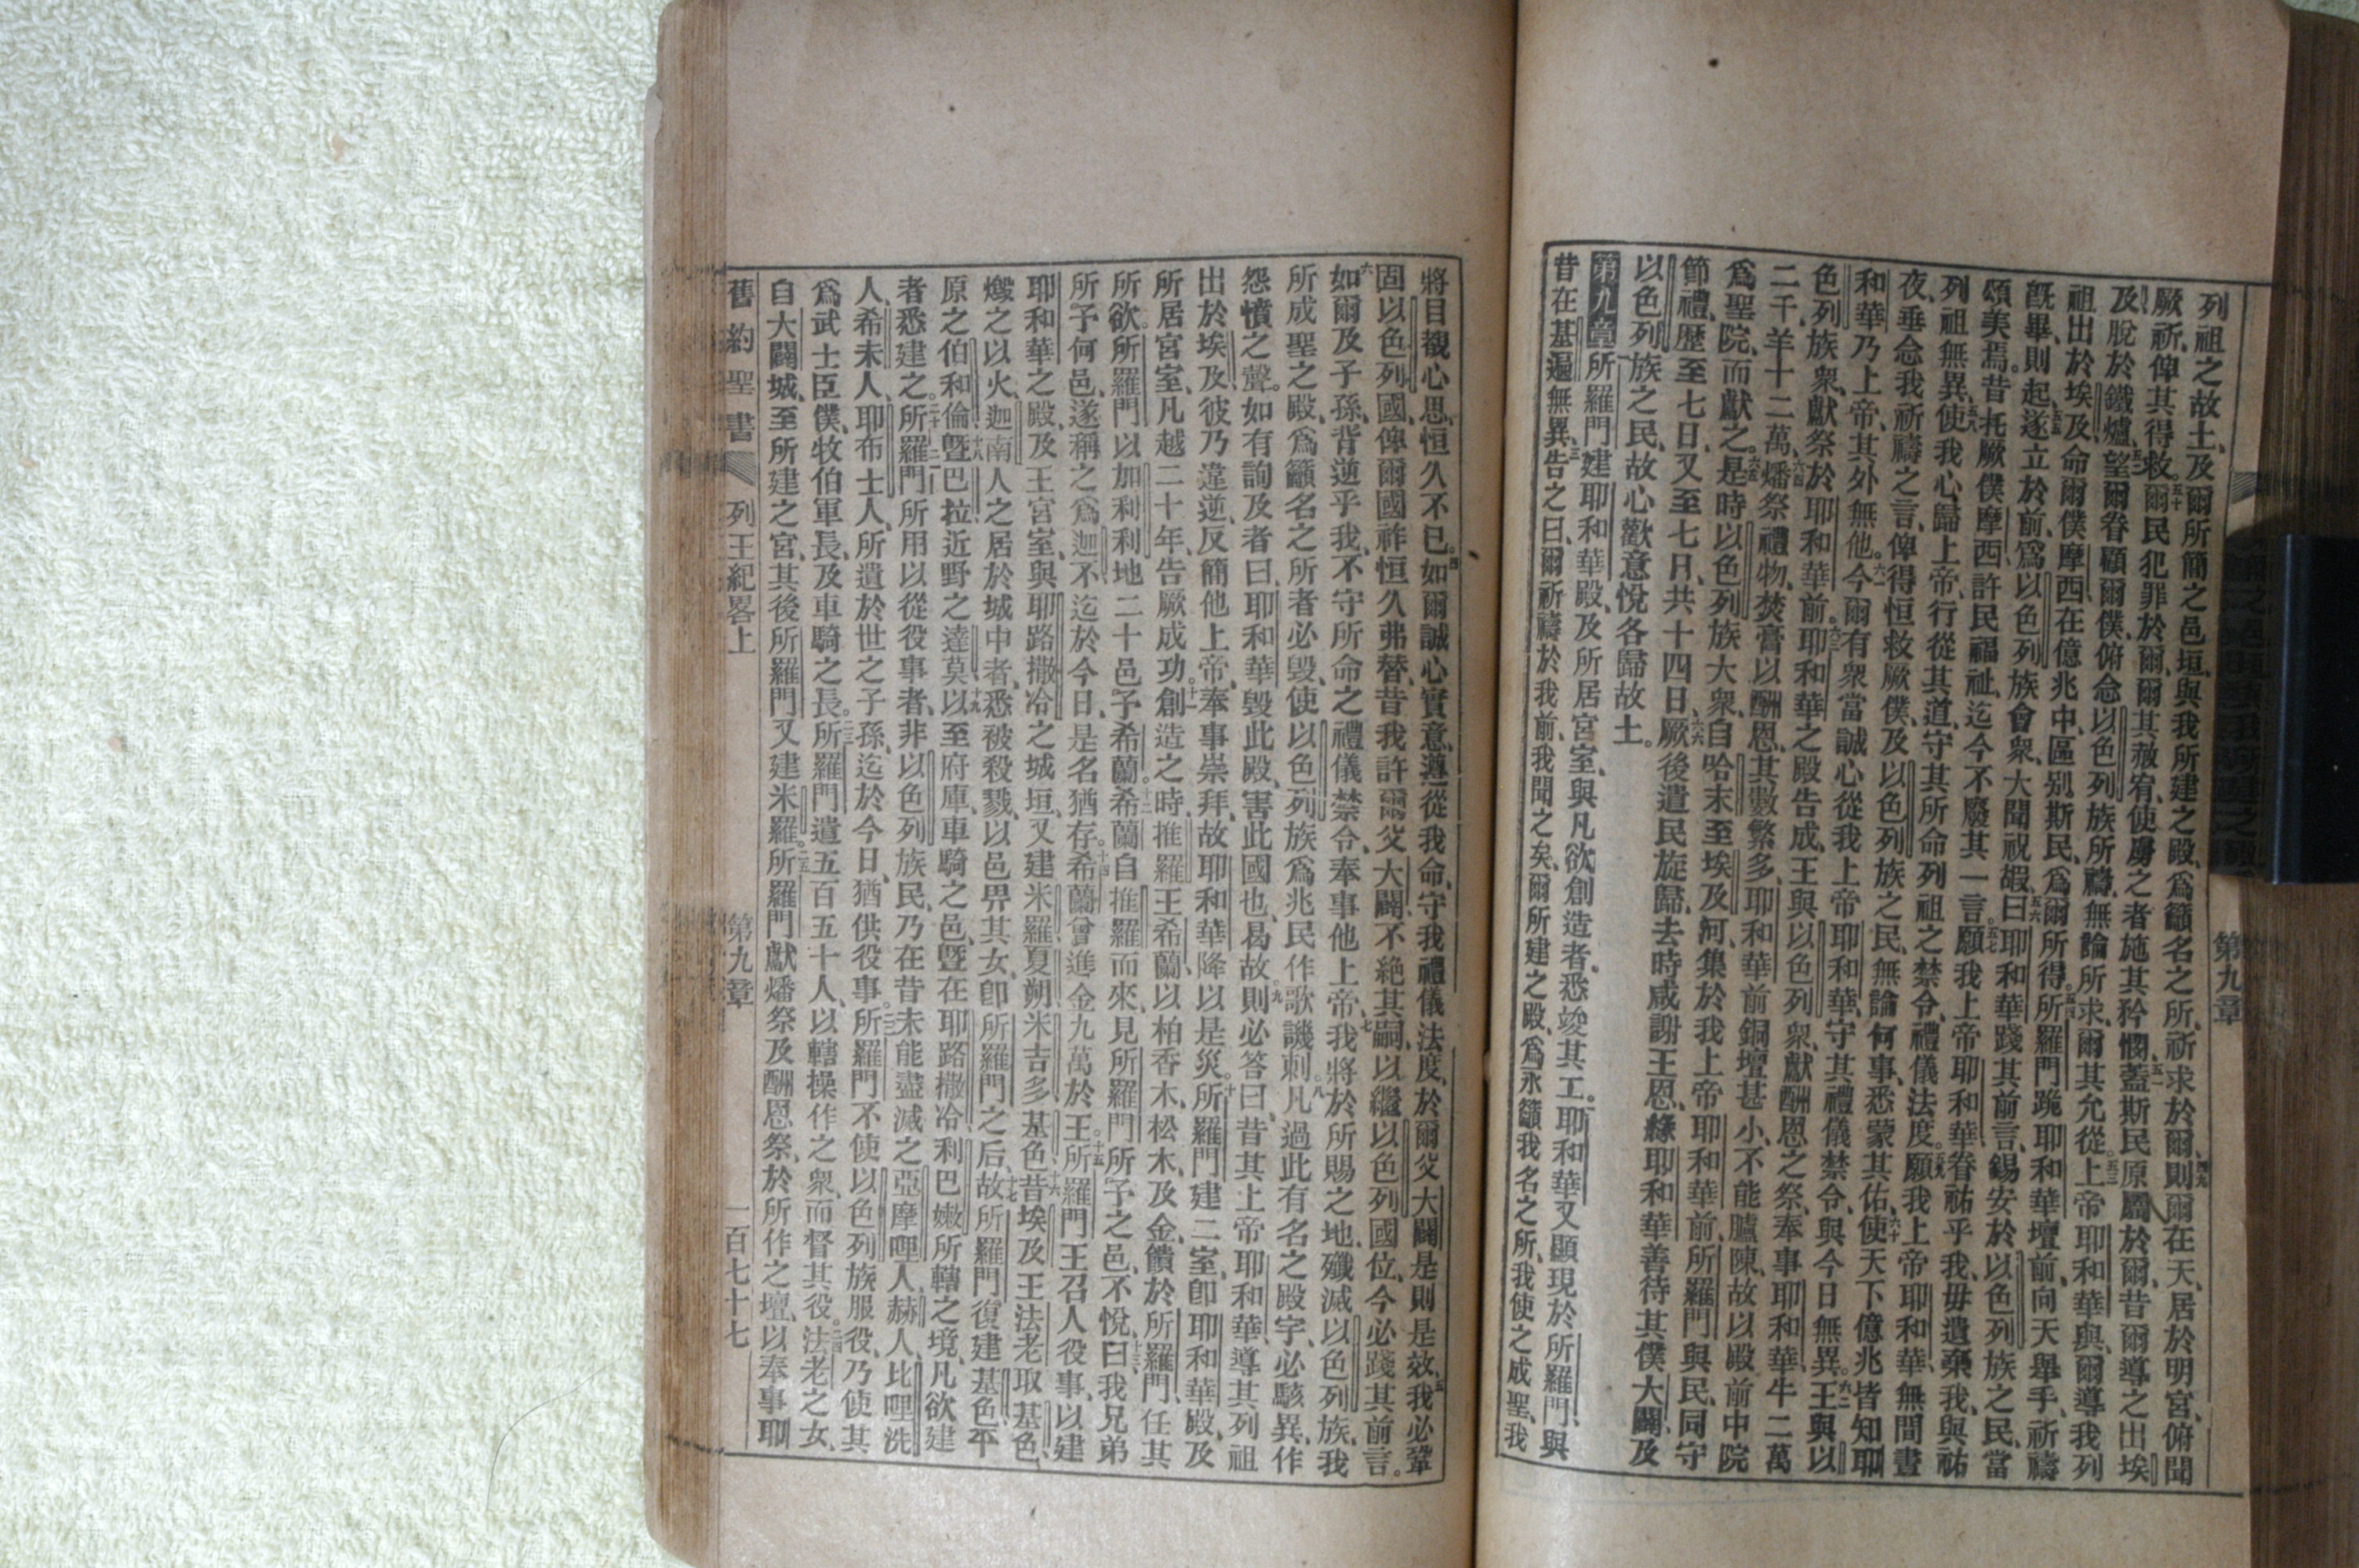 列祖之故土、及爾所簡之邑垣、與我所建之殿、爲籲名之所、祈求於爾、四九則爾在天、居於明宮、俯聞
厥祈、俾其得救。五十爾民犯罪於爾、爾其赦宥、使虜之者施其矜憫、五一蓋斯民原屬於爾、昔爾導之出埃
及、脫於鐵爐、五二望爾眷顧爾僕、俯念以色列族所禱、無論所求、爾其允從。五三上帝耶和華與、爾導我列
祖出於埃及、命爾僕摩西、在億兆中、區別斯民、爲爾所得。五四所羅門跪耶和華壇前、向天舉手、祈禱
旣畢、則起、五五遂立於前、爲以色列族會衆、大聞祝嘏、五六曰、耶和華踐其前言、錫安於以色列族之民、當
頌美焉。昔托厥僕摩西、許民福祉、迄今不廢其一言。五七願我上帝耶和華、眷祐乎我、毋遺棄我、與祐
列祖無異、五八使我心歸上帝、行從其道、守其所命列祖之禁令、禮儀法度。五九願我上帝耶和華、無間晝
夜、垂念我祈禱之言、俾得恒救厥僕、及以色列族之民、無論何事、悉蒙其佑、六十使天下億兆、皆知耶
和華乃上帝、其外無他。六一今爾有衆、當誠心從我上帝耶和華、守其禮儀禁令、與今日無異。六二王與以
色列族衆、獻祭於耶和華前、六三耶和華之殿告成、王與以色列衆、獻酬恩之祭、奉事耶和華、牛二萬
二千、羊十二萬、六四燔祭禮物、焚膏以酬恩、其數繁多、耶和華前銅壇甚小、不能臚陳、故以殿前中院
爲聖院、而獻之。六五是時以色列族大衆、自哈末至埃及河、集於我上帝耶和華前、所羅門與民、同守
節禮、歷至七日、又至七日、共十四日、六六厥後遣民旋歸、去時咸謝王恩、緣耶和華善待其僕大闢、及
以色列族之民、故心歡意悅、各歸故土。
第九章 一所羅門建耶和華殿、及所居宮室、與凡欲創造者、悉竣其工。二耶和華又顯現於所羅門、與
昔在基遍無異、三告之曰、爾祈禱於我前、我聞之矣、爾所建之殿、爲永籲我名之所、我使之成聖、我
第九章
將目覩心思、恒久不已。四如爾誠心實意、遵從我命、守我禮儀法度、於爾父大闢、是則是效、五我必鞏
固以色列國、俾爾國祚恒久弗替、昔我許爾父大闢、不絕其嗣、以繼以色列國位、今必踐其前言。
六如爾及子孫、背逆乎我、不守所命之禮儀禁令、奉事他上帝、七我將於所賜之地、殲滅以色列族、我
所成聖之殿、爲籲名之所者必毀、使以色列族爲兆民作歌譏刺。八凡過此有名之殿宇、必駭異、作
怨憤之聲。如有詢及者曰、耶和華毀此殿、害此國也、曷故、九則必答曰、昔其上帝耶和華、導其列祖
出於埃及、彼乃違逆、反簡他上帝、奉事崇拜、故耶和華降以是災。十所羅門建二室、卽耶和華殿、及
所居宮室、凡越二十年、告厥成功。十一創造之時、推羅王希蘭、以柏香木、松木、及金、饋於所羅門、任其
所欲。所羅門以加利利地二十邑、予希蘭。十二希蘭自推羅而來、見所羅門所予之邑、不悅、十三曰、我兄弟
所予何邑、遂稱之爲迦不、迄於今日、是名猶存。十四希蘭曾進金九萬於王。十五所羅門王召人役事、以建
耶和華之殿、及王宮室、與耶路撒冷之城垣、又建米羅、夏朔、米吉多、基色、十六昔埃及王法老取基色、
燬之以火、迦南人之居於城中者、悉被殺戮、以邑畀其女、卽所羅門之后、十七故所羅門復建基色、平
原之伯和倫、曁十八巴拉、近野之達莫、十九以至府庫、車騎之邑、曁在耶路撒冷、利巴嫩、所轄之境、凡欲建
者悉建之。二十所羅門二一所用以從役事者、非以色列族民、乃在昔未能盡滅之亞摩哩人、赫人、比哩洗
人、希未人、耶布士人、所遺於世之子孫、迄於今日、猶供役事。二二所羅門不使以色列族服役、乃使其
爲武士臣僕、牧伯軍長、及車騎之長。二三所羅門遣五百五十人、以轄操作之衆、而督其役。二四法老之女、
自大闢城、至所建之宮、其後所羅門又建米羅。二五所羅門獻燔祭及酬恩祭、於所作之壇、以奉事耶
舊約聖書 列王紀畧上 第九章 一百七十七